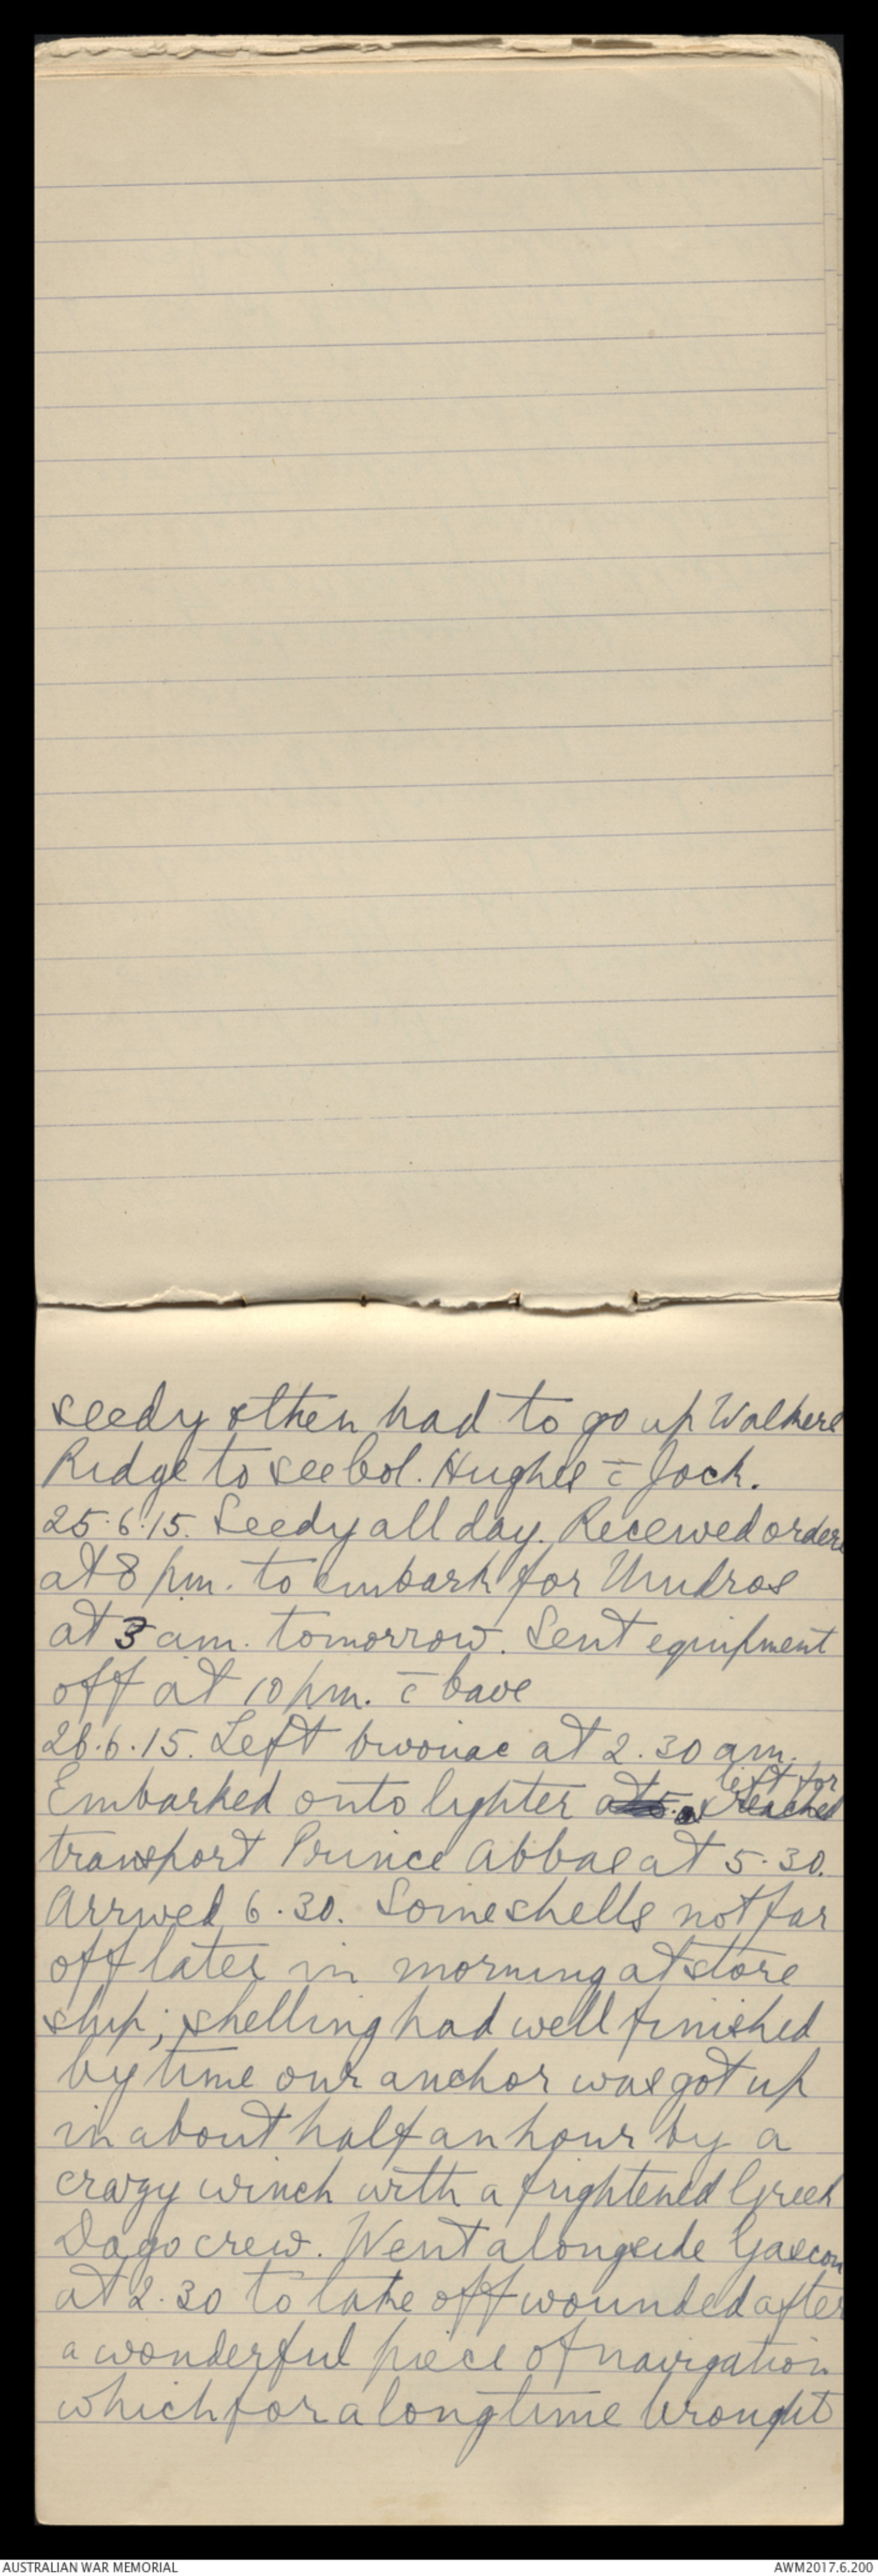 seedy & then had to go up Walkers
Ridge to see Col. Hughes c̄ Jock.
25.6.15. Seedy all day. Received orders
at 8 pm. to embark for Mudros
at 3 am. tomorrow. Sent equipment
off at 10 pm. c̄ Cave
26.6.15. Left bivouac at 2.30 am.
left for
Embarked onto lighter & reached
transport Prince Abbas at 5.30.
Arrived 6.30. Some shells not far
off later in morning at store
ship; shelling had well finished
by time our anchor was got up
in about half an hour by a
crazy winch with a frightened Greek
Dago crew. Went alongside Gascon
at 2.30 to take off wounded after
a wonderful piece of navigation
which for a long time brought
AUSTRALIAN WAR MEMORIAL
AWM2017.6.200